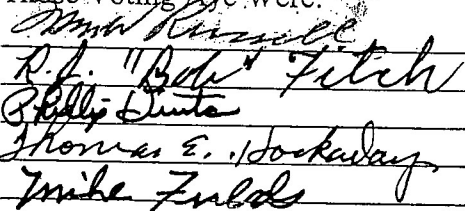 Those Voting Aye Were:
Russell
R.J. "Bob" Fitch
Phillip
Thomas E. Hockaday
Mike Fields